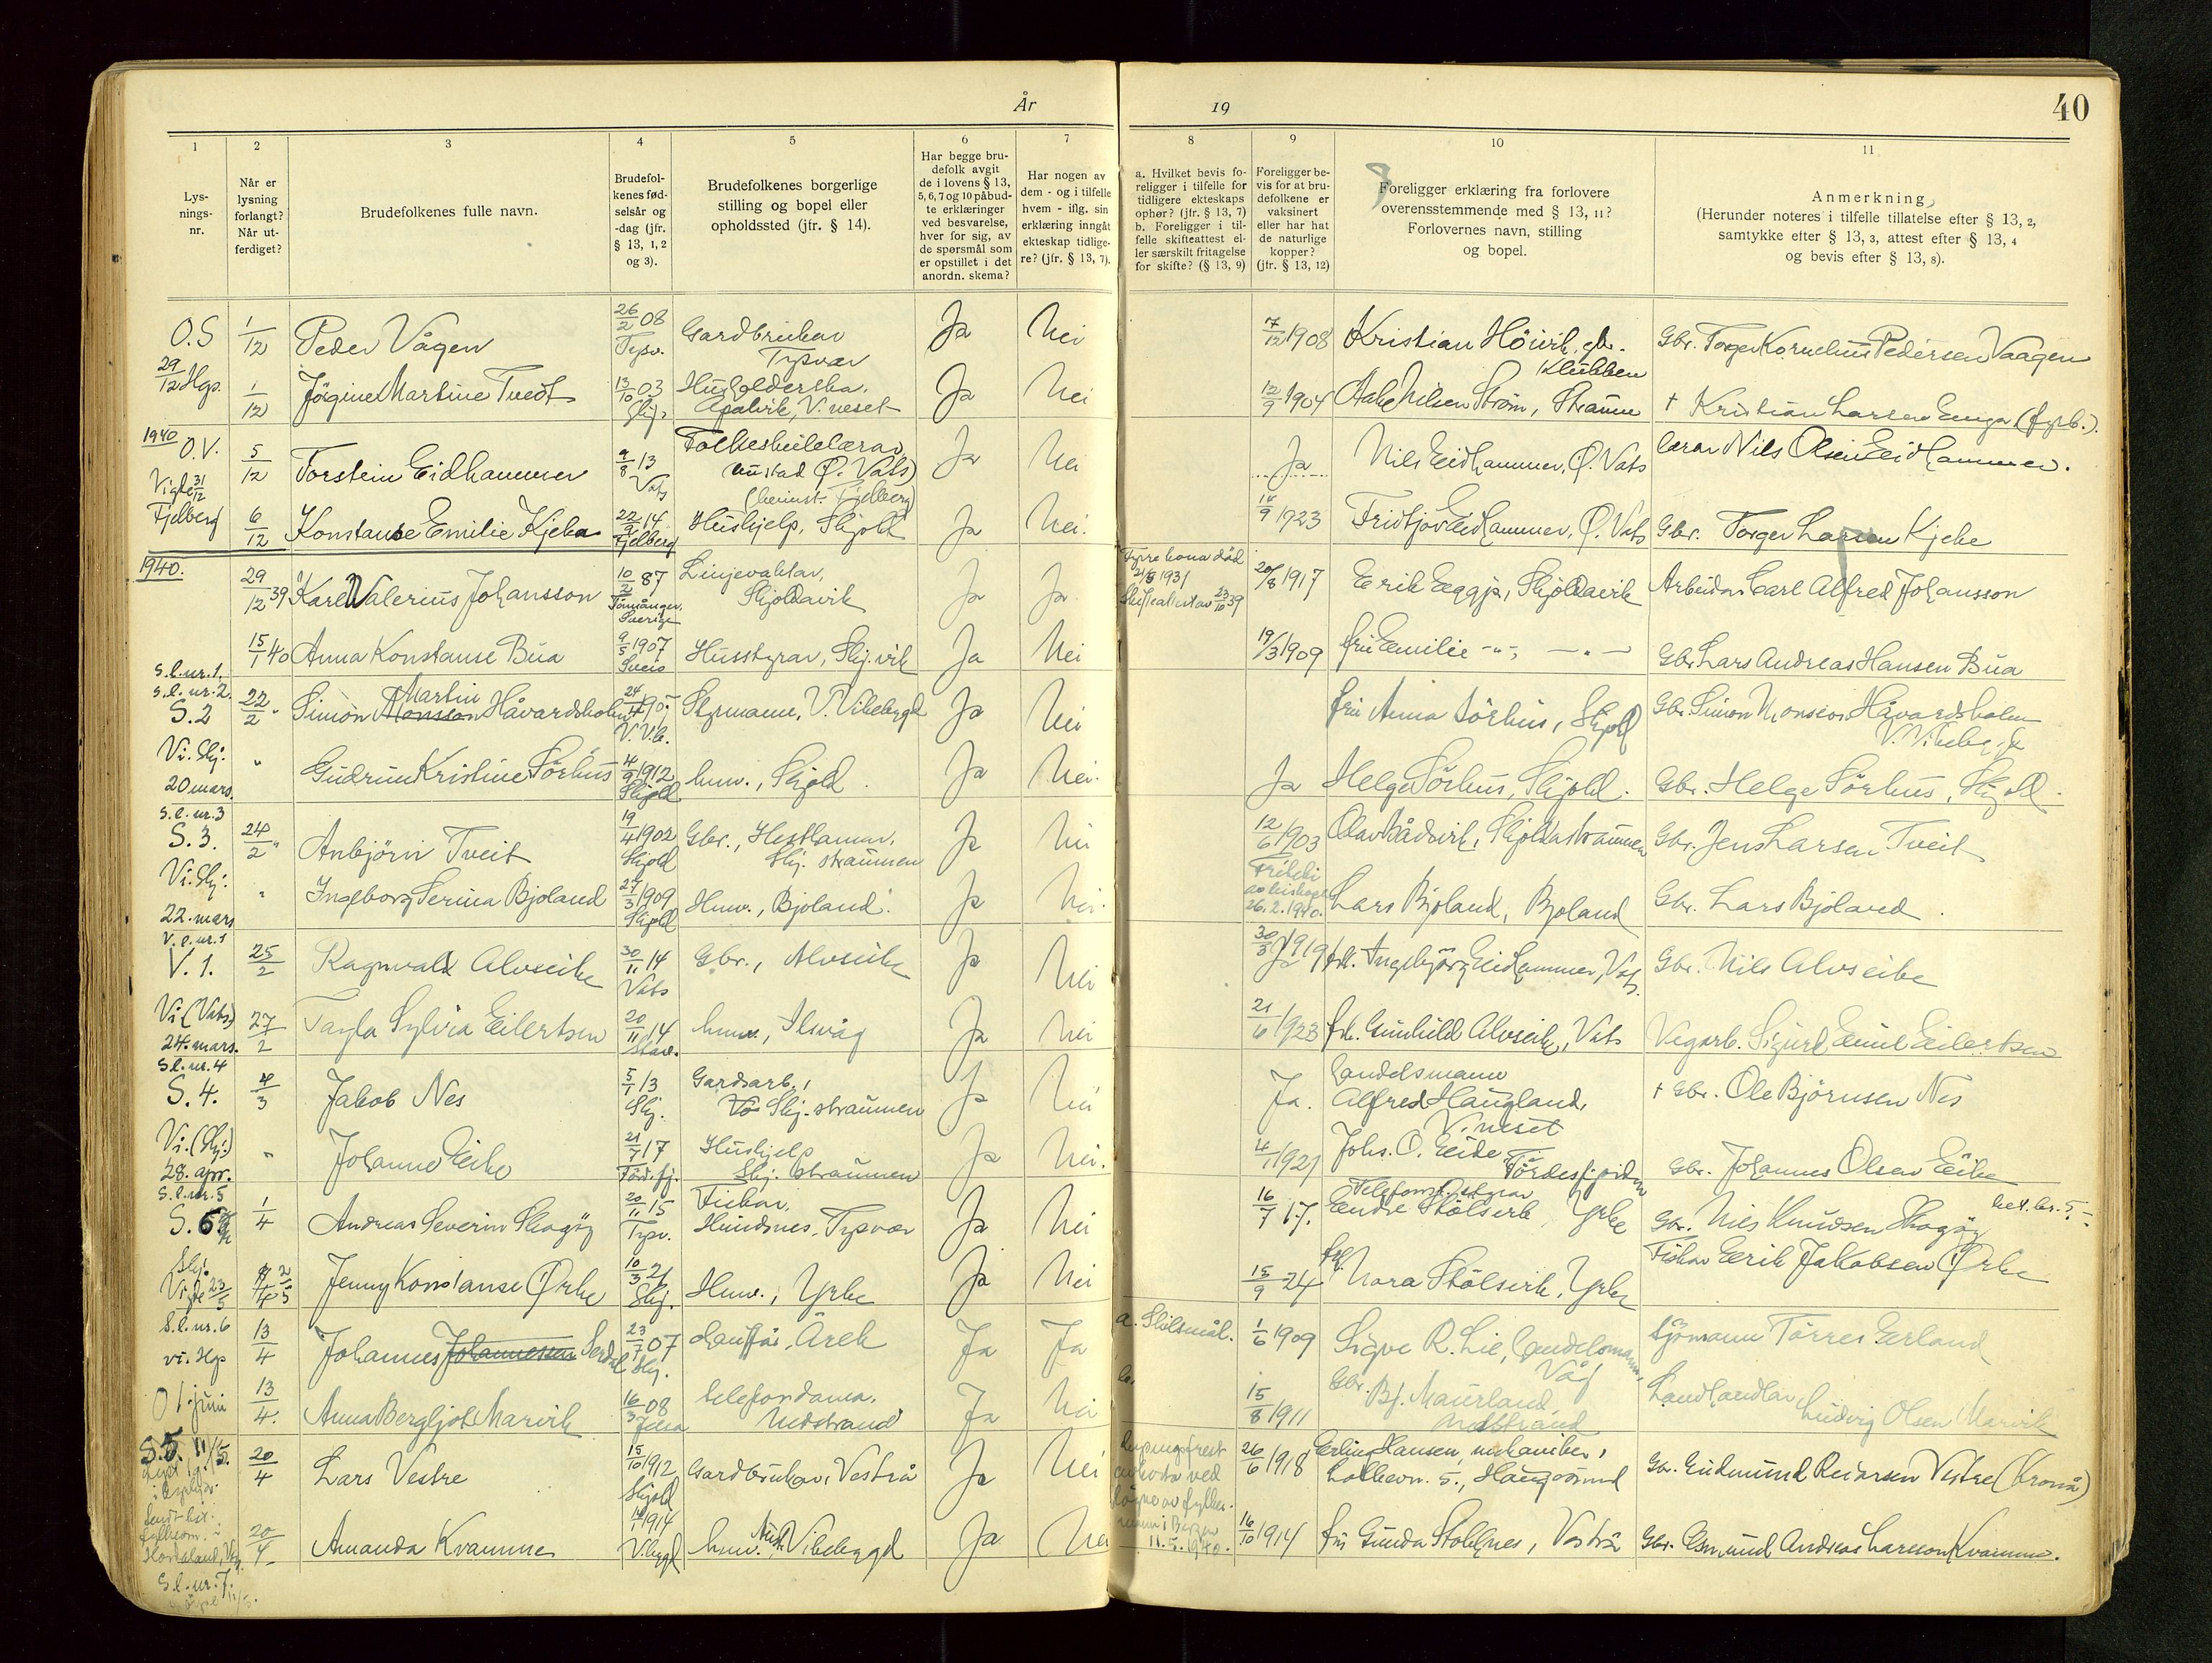 År 19
40
1 2 3 4 5 6 7 8 9 10 11
Lys-
nings-
nr.
Når er
lysning
forlangt?
Når ut-
ferdiget?
Brudefolkenes fulle navn.
Brudefol-
kenes fød-
selsår og
-dag (jfr.
§ 13, 1, 2
og 3).
Brudefolkenes borgerlige
stilling og bopel eller
opholdssted (jfr. § 14).
Har begge bru-
defolk avgit
de i lovens § 13,
5, 6, 7 og 10 påbud-
te erklæringer
ved besvarelse,
hver for sig, av
de spørsmål som
er opstillet i det
anordn. skema?
Har nogen av
dem - og i tilfelle
hvem - iflg. sin
erklæring inngåt
ekteskap tidlige-
re? (jfr. § 13, 7).
a. Hvilket bevis fo-
religger i tilfelle for
tidligere ekteskaps
ophør? (jfr. § 13, 7)
b. Foreligger i til-
felle skifteattest el-
ler særskilt fritagelse
for skifte? (§ 13, 9)
Foreligger be-
vis for at bru-
defolkene er
vaksinert
eller har hat
de naturlige
kopper?
(jfr. § 13, 12)
Foreligger erklæring fra forlovere
overensstemmende med § 13, 11?
Forlovernes navn, stilling
og bopel.
Anmerkning
(Herunder noteres i tilfelle tillatelse efter § 13, 2,
samtykke efter § 13, 3, attest efter § 13, 4
og bevis efter § 13, 8).
O.S 1/12 Peder Vågen 26/2 08 Tysv. Gardbrukar Tysvær Ja Nei 7/12 1908 Kristian Höivik, gbr. Klubben Gbr. Torger Kornelius Pedersen Vaagen
29/12 Hgs. 1/12 Jörgine Martine Tvedt 13/10 03 Skj. Husholderska, Apalvik, V. neset Ja Nei 12/9 1904 Aake Nilsen Strøm, Straume † Kristian Larsen
1940 O.V. 5/12 Torstein Eidhammer 9/8 13 Vats Folkeskulelærar (bustad Ø. Vats) Ja Nei Ja Nils Eidhammer, Ø. Vats lærar Nils Olsen Eidhammer.
Vigde 31/12 Fjelberg 6/12 Konstanse Emilie Kjeka 22/9 14 Fjelberg (heimst. Fjelberg) Hushjelp, Skjold Ja Nei. 14/9 1923 Fridtjov Eidhammer, Ø. Vats Gbr. Torger Larsen Kjeke
1940. 29/12 39 Karl Valerius Johansson 10/2 87 Sverige Linjevaktar, Skjoldavik Ja Ja Fyrre kona död 21/8 1931 Skifteattest av 23/10 39 20/8 1917 Erik Egge, Skjoldavik Arbeidar Carl Alfred Johansson
s.l.nr. 1. 15/1 40 Anna Konstanse Bua 9/5 1907 Sveio Husstyrar, Skj. vik Ja Nei 19/3 1909 fru Emilie -"-, -"- Gbr. Lars Andreas Hansen Bua
s.l.nr. 2. S. 2 22/2 Simon Martin Monsson Håvardsholm 24/4 1905 V. Vik. Styrmann, V. Vikebygd Ja Nei fru Anna Sörhus, Skjold Gbr. Simon Monsson Håvardsholm V. Vikebygd
Vi. Skj: 20 mars. " Gudrun Kristine Sörhus 4/9 1912 Skjold huw., Skjold Ja Nei. Ja Helge Sörhus, Skjold. Gbr. Helge Sörhus, Skjold.
s.l.nr. 3 S. 3. 24/2 " Anbjörn Tveit 19/4 1902 Skjold Gbr., Hesthamm. Skj. straumen Ja Nei 12/6 1903 Olav Bådsvik, Skjoldastraumen Gbr. Jens Larsen Tveit
Vi. Skj: 22. mars " Ingeborg Serina Bjoland 27/3 1909 Skjold Huw., Bjoland. Ja Nei. Fritak av biskop 26.2.1940. Lars Bjoland, Bjoland Gbr. Lars Bjoland.
V.l.nr. 1 V. 1. 25/2 Ragnvald Alvseike 30/11 14 Vats Gbr., Alvseike Ja Nei 30/3 1919 frk. Ingebjörg Eidhammer, Vats. Gbr. Nils Alvseike
Vi (Vats) 24. mars. 27/2 Tayla Sylvia Eilertsen 20/11 14 Stav. huw., Ilsvåg Ja Nei 21/6 1923 frk. Gunhild Alvseike, Vats Vegarb. Sigurd Emil Eilertsen
S.l.nr. 4 S. 4. 4/3 Jakob Nes 5/1 13 Skj. Gardsarb., Skj. straumen Ja Nei Ja. handelsmann Alfred Haugland, V. neset † Gbr. Ole Björnsen Nes
Vi. (Skj.) 28. apr. " Johanne Eike 21/7 17 Förd. fj. Hushjelp Skj. straumen Ja Nei. 4/1 1921 Johs. O. Eide, Fördesfjorden Gbr. Johannes Olsen Eike
S.l.nr. 5 S. 6 1/4 Andreas Severin Skogöy 20/11 15 Tysv. Fiskar, Hundsnes, Tysvær Ja Nei 16/7 17. Telefonstyrar Endre Stölsvik, Yrke Gbr. Nils Knudsen Skogöy
Skj. Vigde 23/5 2/5 Jenny Konstanse Ørke 10/3 21 Skj. Huw., Yrke Ja Nei 15/9 24 frk. Nora Stölsvik, Yrke Fiskar Erik Jakobsen Ørke
S.l.nr. 6 vi. Hgs 13/4 Johannes Johannessen 23/7 07 Skj. Årek Ja Ja a. Skilsmål. 1/6 1909 Sigve R. Lie, handelsmann, Våg Sjömann Törres Erland
1. juni 13/4. Anna Bergljot Marvik 16/3 08 Jelsa telefondama, Nedstrand Ja Nei b. 15/8 1911 Gbr. Bj. Maurland, Nedstrand Landhandlar Ludvig Olsen Marvik
S 5. 11/5. 20/4 Lars Vestre 15/10 1912 Skjold Gardbrukar, Vestrå Ja Nei 26/6 1918 Erling Hansen, mekaniker, Haugesund Gbr. Gudmund Reiarsen Vestre (Kronå)
20/4 Amanda Kvamme 1914 V.bygd huw. Vikebygd Ja Nei fylkesmann i Bergen 11.5.1940. 16/10 1914 fru Gunda Stokknes, Vestrå Gbr. Osmund Andreas Larsson Kvamme.
S.l.nr. 7.